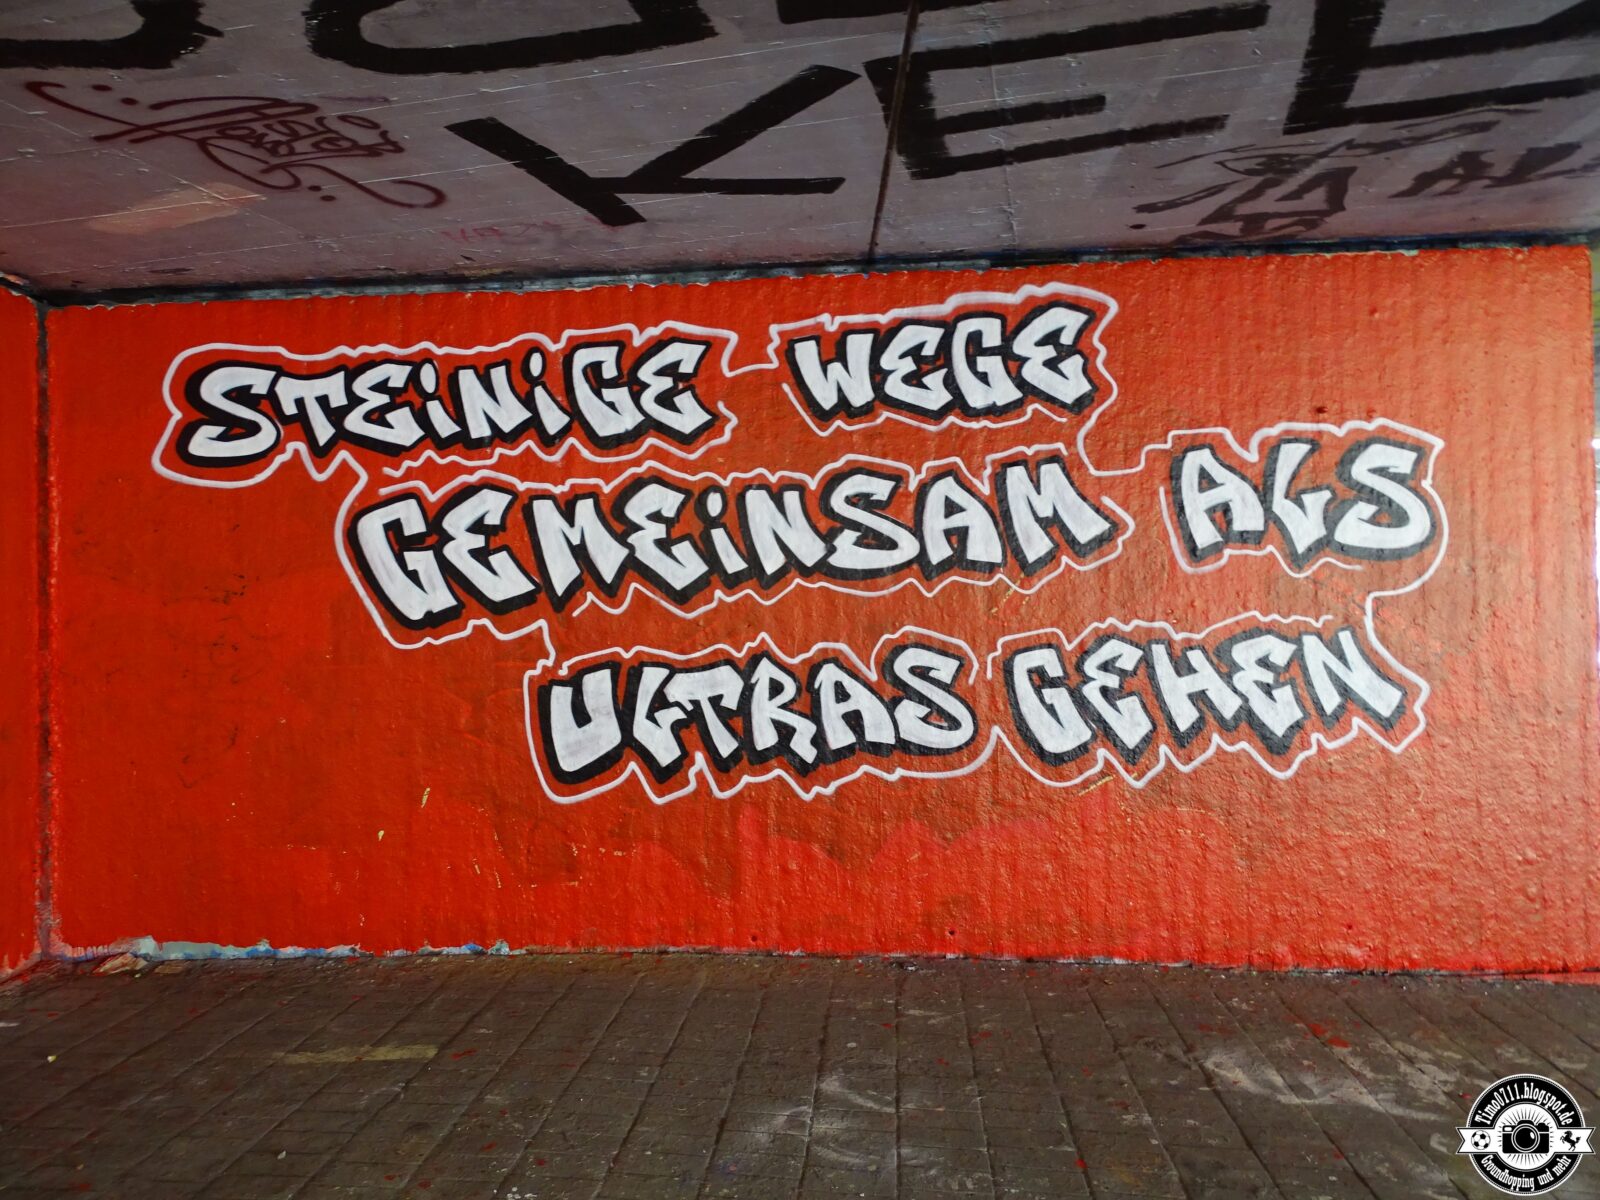 KE
STEINIGE WEGE
GEMEINSAM ALS
ULTRAS GEHEN
Timo0711.blogspot.de
Groundhopping und mehr